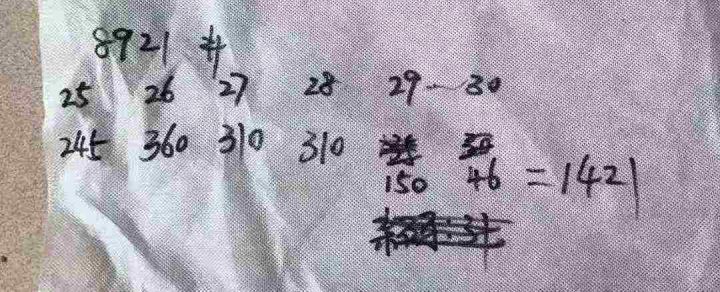 8921 #
25 26 27 28 29 — 30
245 360 310 310
150 46 = 1421